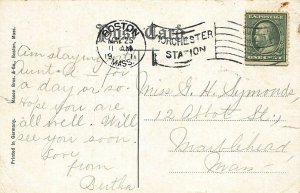 Post Card
BOSTON
11 AM
MASS.
DORCHESTER
STATION
U.S. POSTAGE
ONE CENT
Am staying at
aunt A for
a day or so.
Hope you are
all well. Will
see you soon.
Love
from
Bertha
Miss G. H. Symonds
12 Abbot St.
Marblehead,
Mass
Mason Bros. & Co., Boston, Mass.
Printed in Germany.